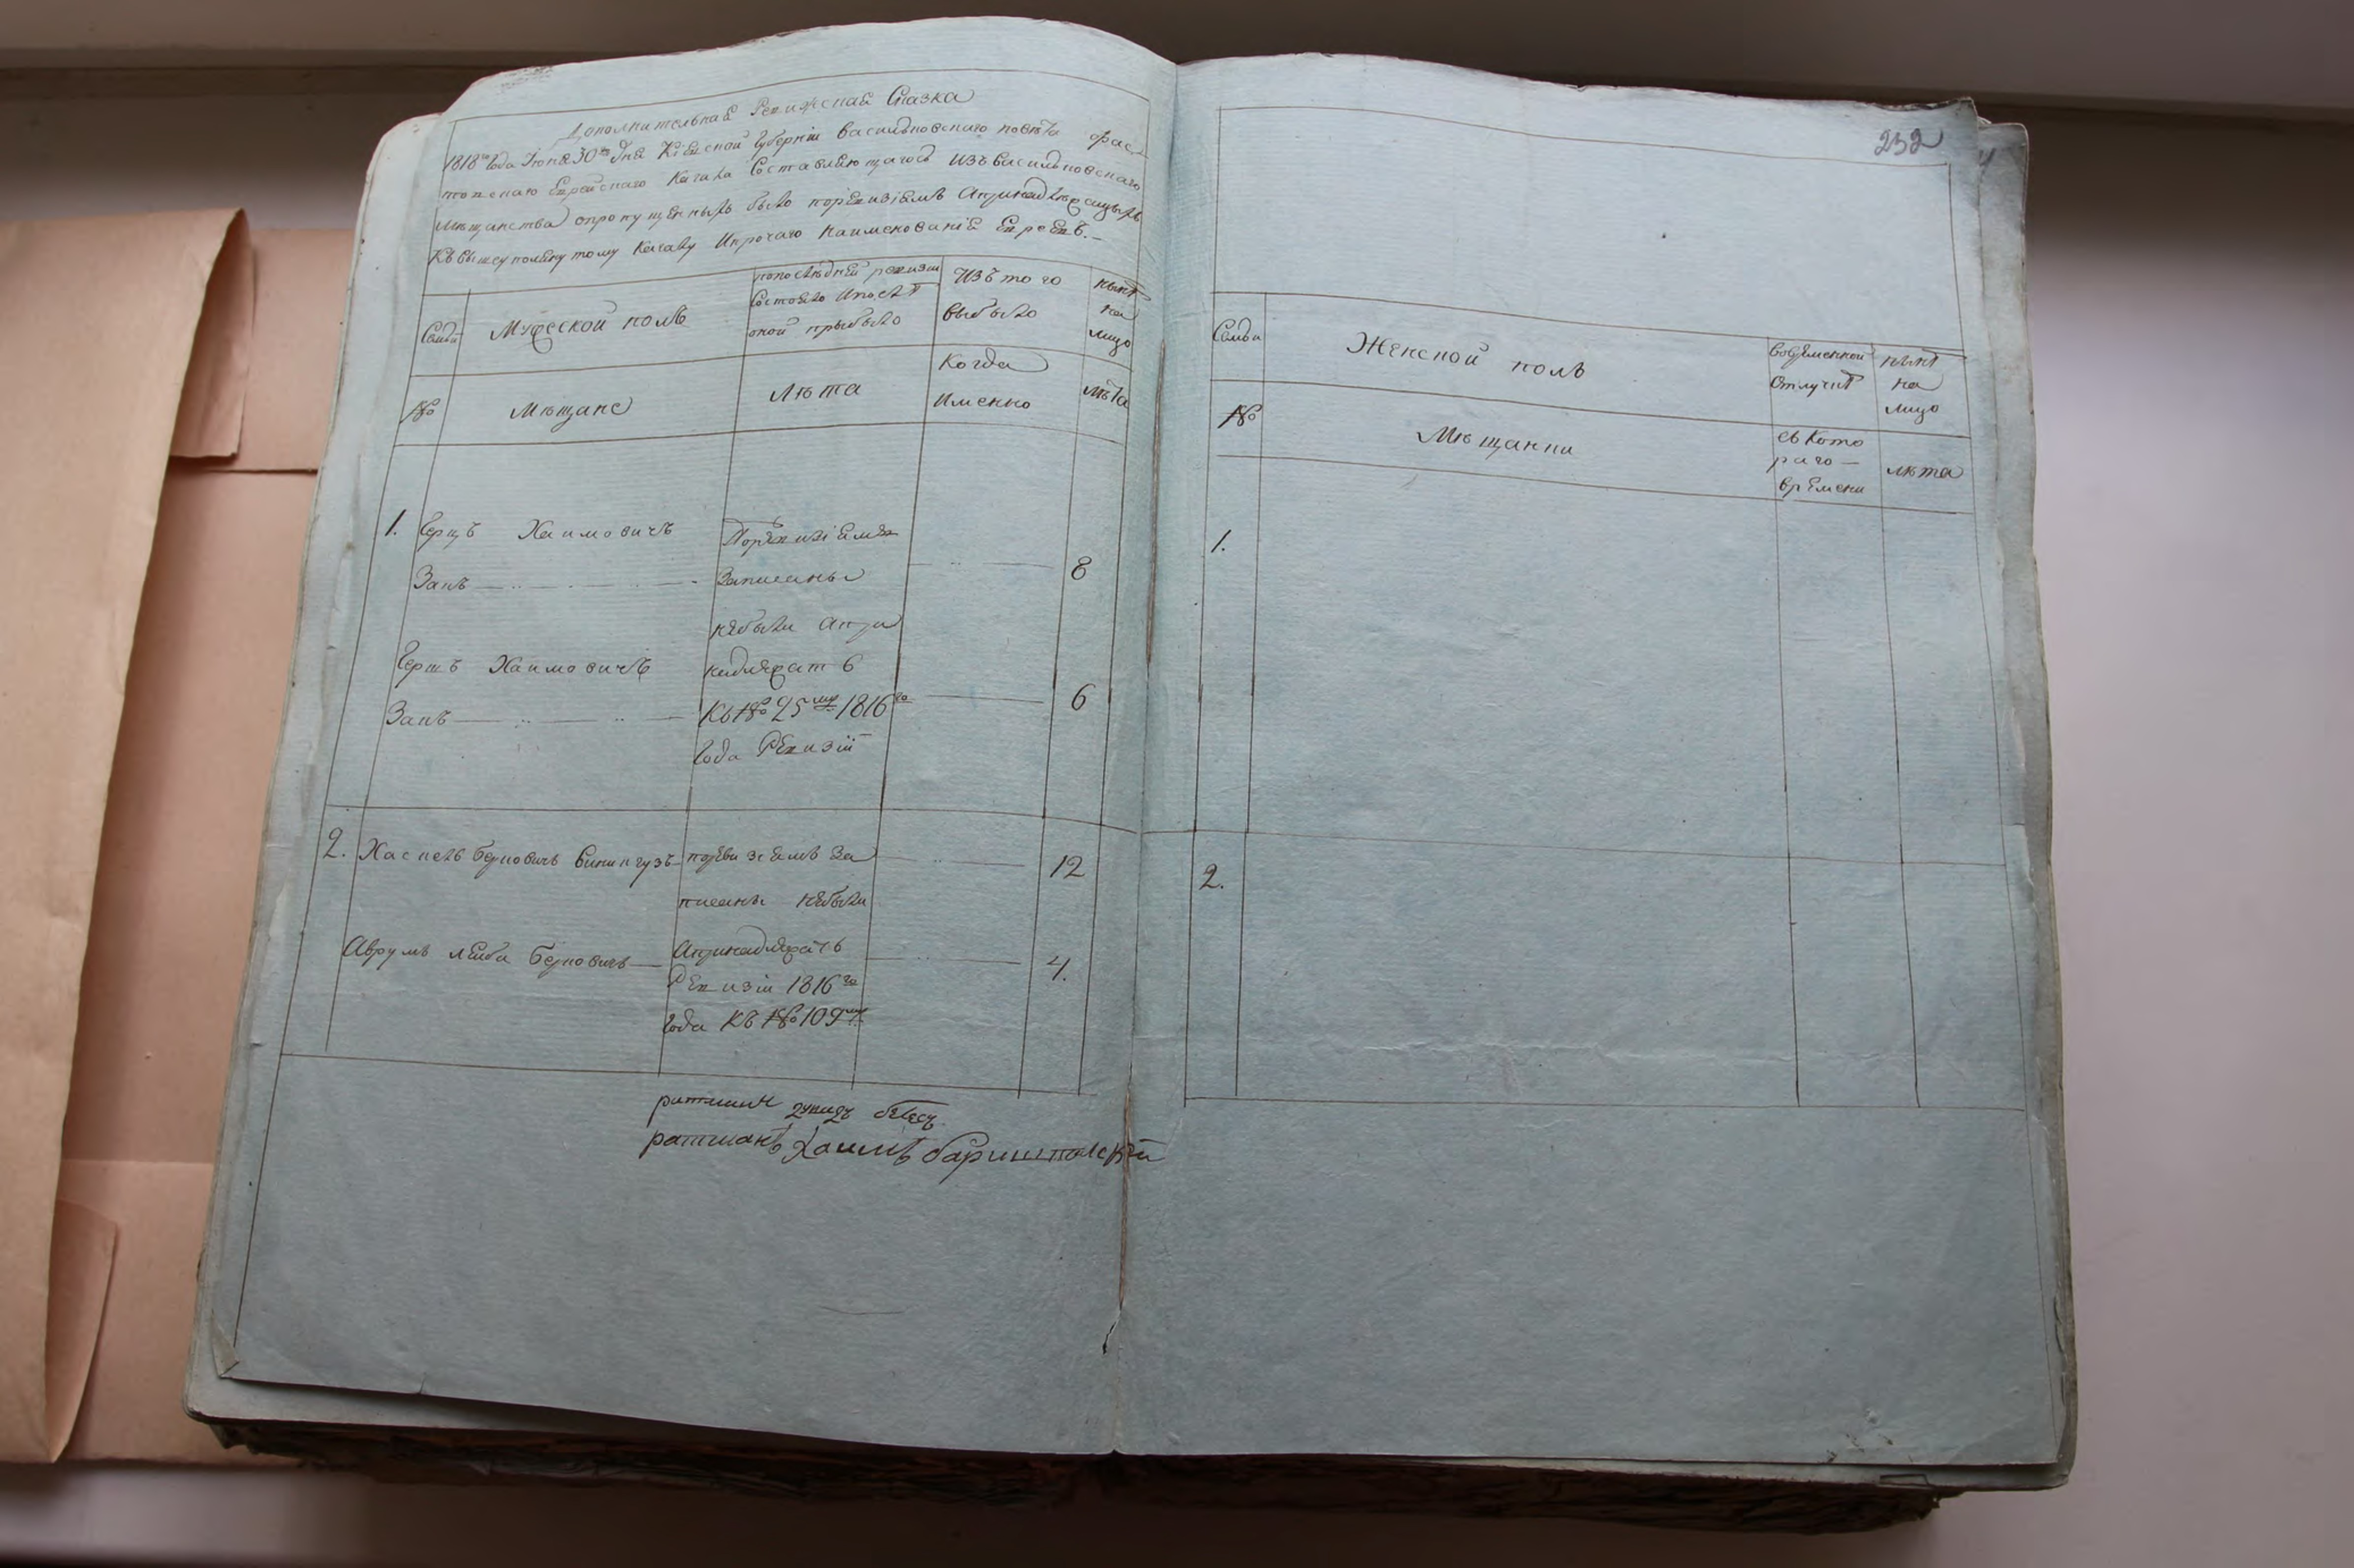 Дополнительная Ревижская Сказка
1818го Года Июня 30го дня Кіевской Губерніи Васильковского повѣта Фас
товскаго Еврейскаго Кагала Составляющагося Изъ Васильковскаго
Мѣщанства опропущенныхъ было поревизіямъ Апринадлѣжащыхъ
Къ вышеупомянутому Кагалу Ипрочаго Наименованія Евреевъ.
Семьи
Мужеской полъ
попослѣдней ревизии
Состояло Ипослѣ
оной прыбыло
Изъ того
выбыло
нынѣ
на
лицо
№
Мѣщане
Лѣта
Когда
Именно
Лѣта
1. Герцъ Хаимовичъ
Закъ
Поревизіямъ
Записаны
небыли Апри
надлежатъ
Къ № 25му 1816го
Года Ревизіи
8
Гершъ Хаимовичъ
Закъ
6
2. Хаскель Берковичъ
поревизіямъ За
писаны небыли
Апринадлежатъ
Ревизіи 1816го
Года Къ № 109му
12
Аврумъ Лейба Берковичъ
4.
ратманъ
ратманъ Хаимъ
232
Семьи
Женской полъ
Вовременной
Отлучкѣ
нынѣ
на
лицо
№
Мѣщанки
съ Кото
раго
времени
лѣта
1.
2.